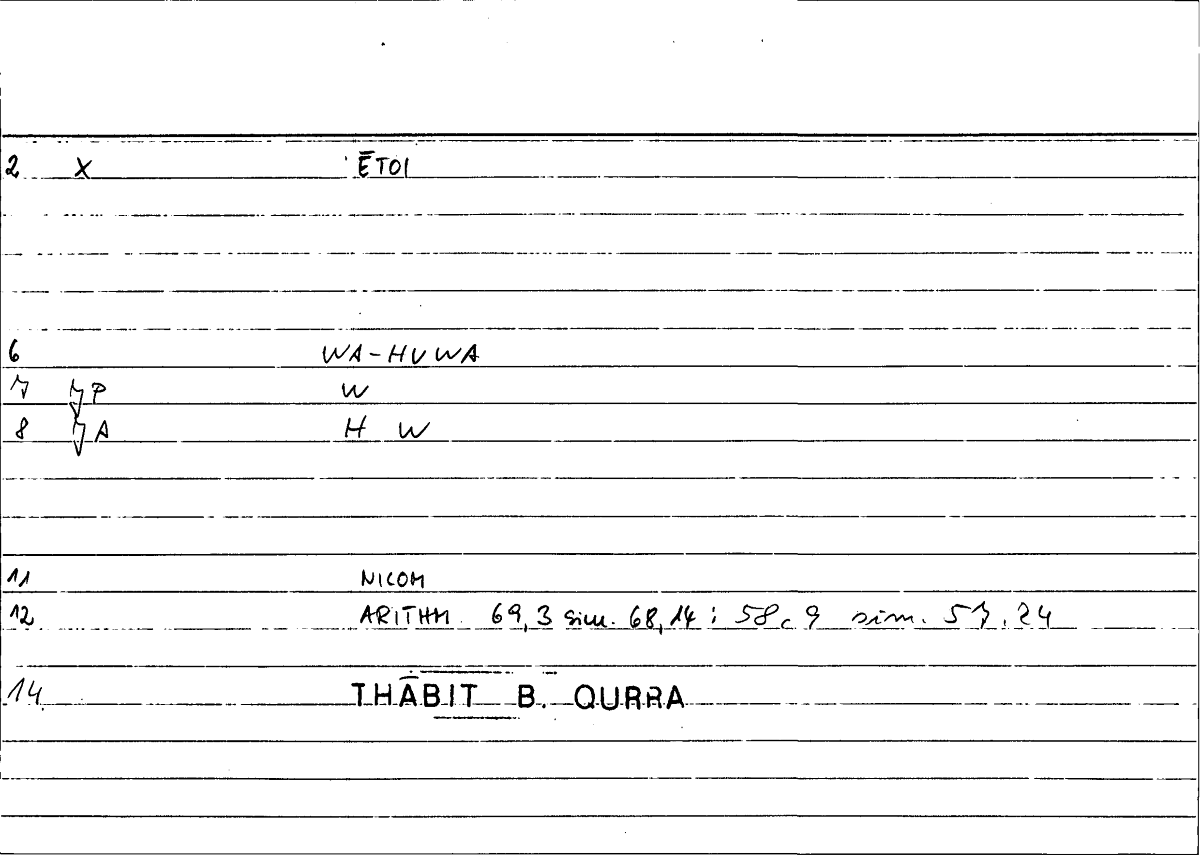 2 X ĒTOI
6 WA-HUWA
7 P W
8 A H W
11 NICOM
12 ARITHM 69,3 sim. 68,14 ; 58,9 sim. 57,24
14 THĀBIT B. QURRA